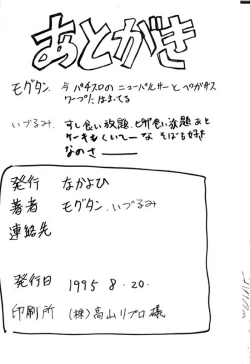 あとがき
モグタン. 今パチスロのニューパルサーとペガサス
ワープにはまってる
いづるみ. すし食い放題、ピザ食い放題あと
ケーキもくいてーな そばも好き
なのさ――
発行 なかよひ
著者 モグタン.いづるみ
連絡先
発行日 1995 8.20.
印刷所 (株)高山リプロ様